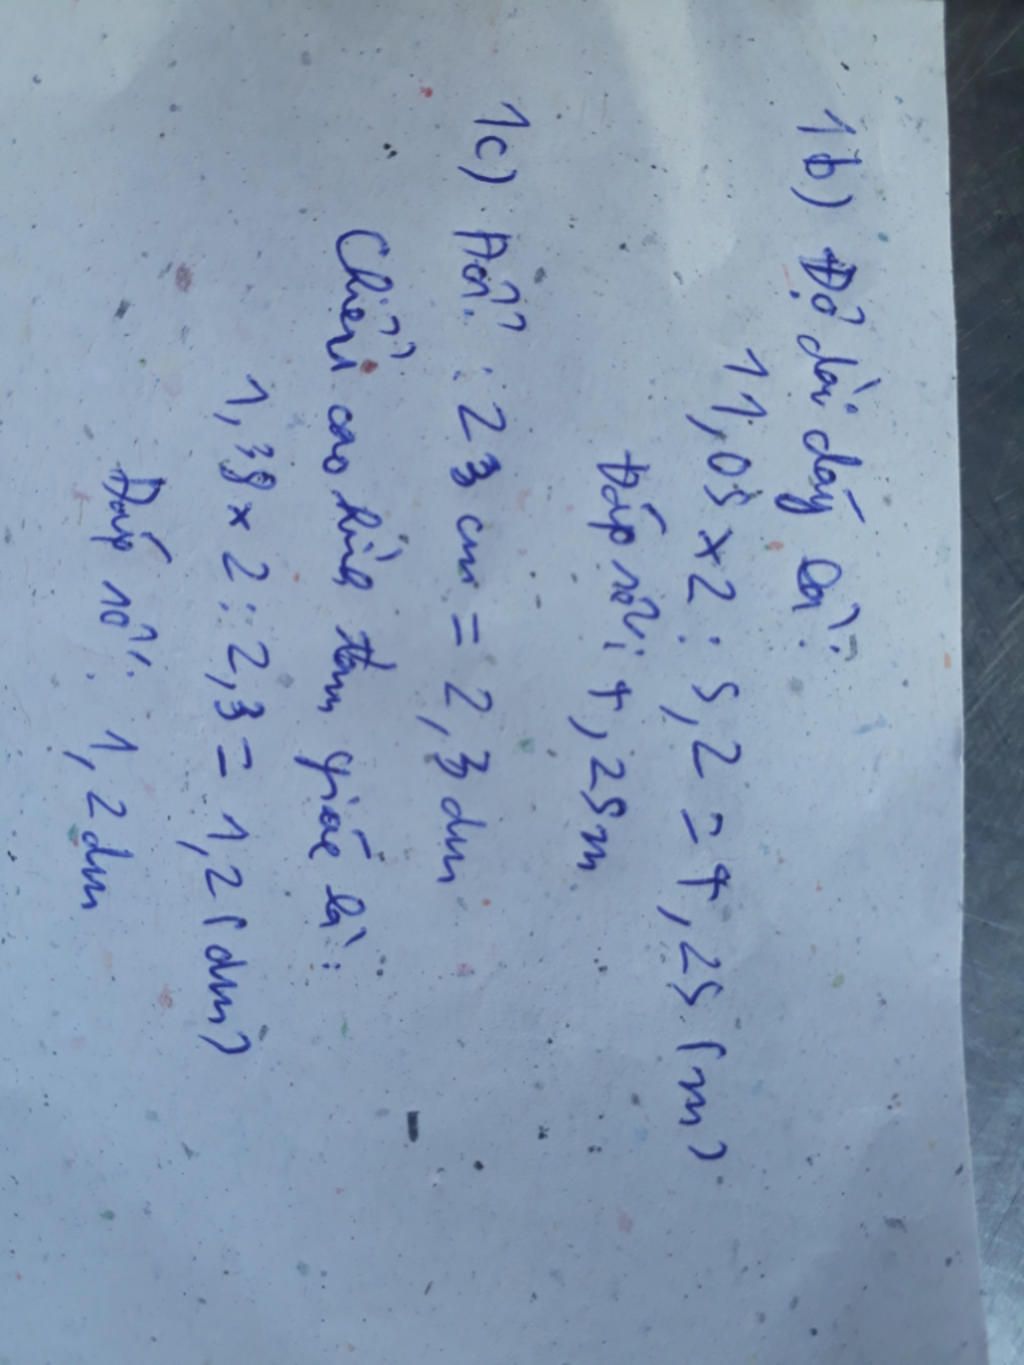 1b) Độ dài đáy là:
11,05 x 2 : 5,2 = 4,25 (m)
Đáp số: 4,25m
1c) Đổi : 23 cm = 2,3 dm
Chiều cao hình tam giác là:
1,38 x 2 : 2,3 = 1,2 (dm)
Đáp số: 1,2 dm